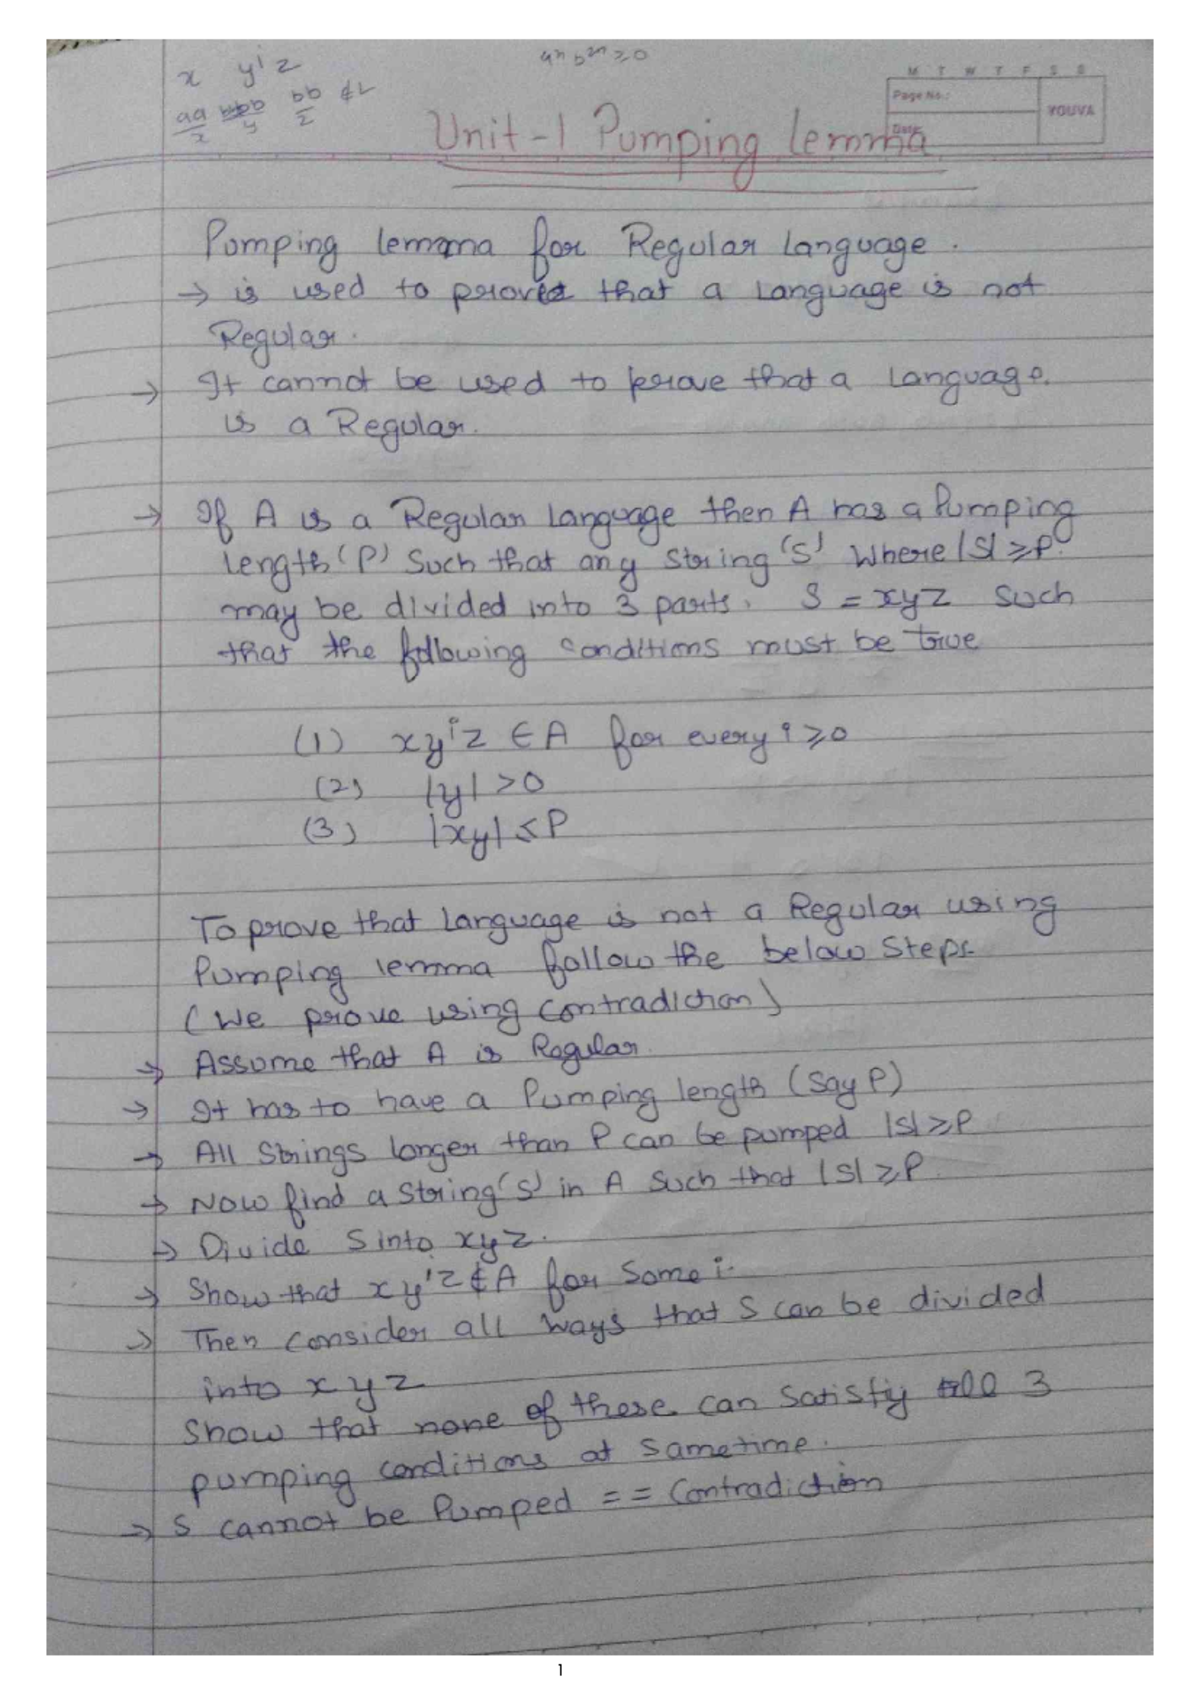 x y^i z
a^n b^2n ≥0
aa bbb bb ∉L
x y z
M T W T F S S
Page No.:
Date:
YOUVA
Unit-1 Pumping Lemma
Pumping lemma for Regular Language.
→ is used to prove that a Language is not
Regular.
→ It cannot be used to prove that a Language.
is a Regular.
→ If A is a Regular Language then A has a Pumping
length 'P' Such that any string 'S' where |S| ≥ P
may be divided into 3 parts. S = xyz such
that the following conditions must be true
(1) xy^i z ∈ A for every i ≥ 0
(2) |y| > 0
(3) |xy| ≤ P
To prove that Language is not a Regular using
Pumping lemma follow the below Steps.
(We prove using contradiction)
→ Assume that A is Regular.
→ It has to have a Pumping length (say P)
→ All Strings longer than P can be pumped |S| ≥ P
→ Now find a string 'S' in A such that |S| ≥ P.
→ Divide S into xyz.
→ Show that x y^i z ∉ A for some i.
→ Then consider all ways that S can be divided
into x y z
Show that none of these can satisfiy all 3
pumping conditions at sametime.
→ S cannot be Pumped == Contradiction
1